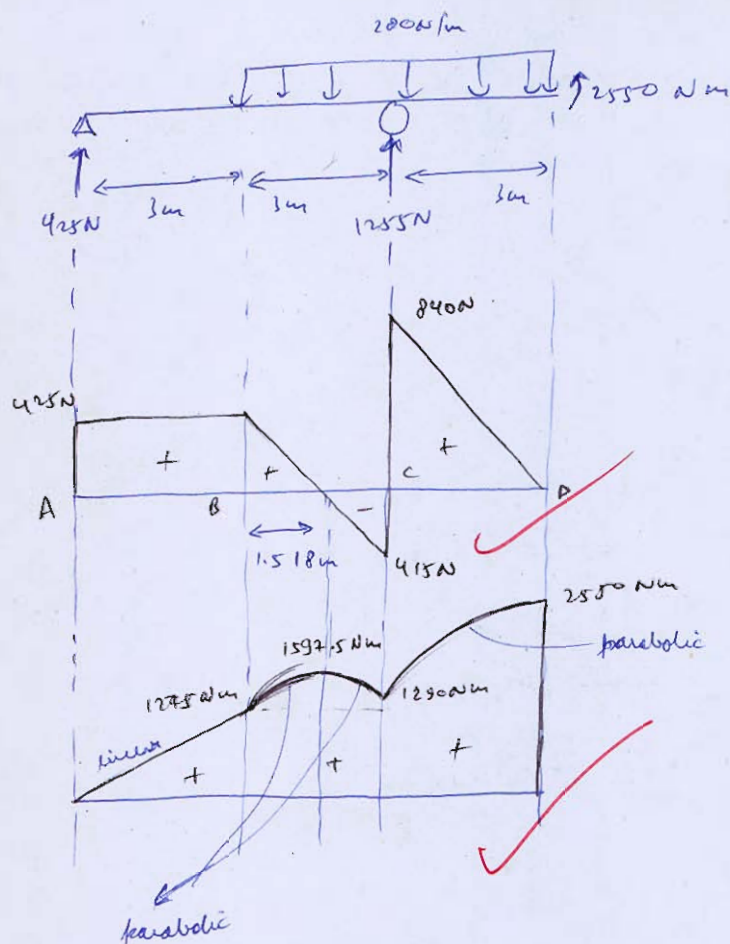 280N/m
2550 Nm
3m 3m 3m
425N 1255N
840N
425N
+ + - +
A B C D
1.518m
415N
2550 Nm
1597.5 Nm
parabolic
1275Nm
1290Nm
linear
+ + +
parabolic